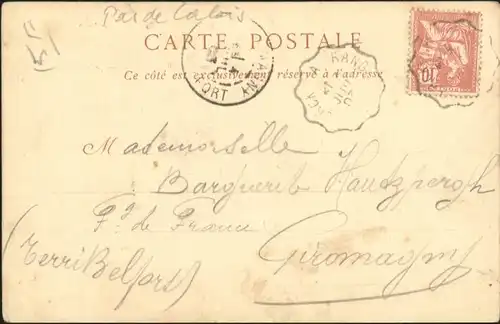 Pas de Calais
CARTE POSTALE
Ce côté est exclusivement réservé à l'adresse
Mademoiselle
Barguerit Hautzpergh
Fg de France
Giromagny
(Terri Belfort)
10